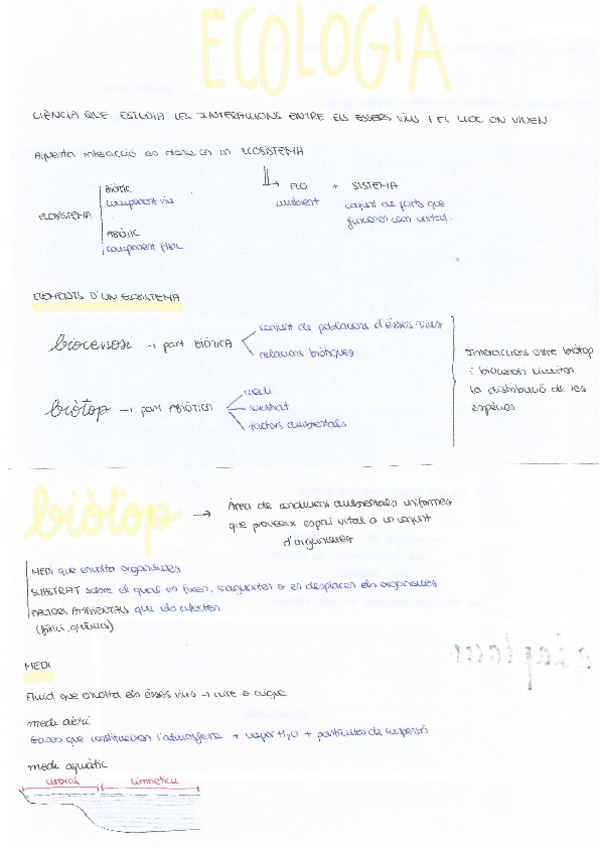 ECOLOGIA
CIÈNCIA QUE ESTUDIA LES INTERACCIONS ENTRE ELS ESSERS VIUS I EL LLOC ON VIUEN
Aquesta interacció es dona en un ECOSISTEMA
ECO + SISTEMA
ambient
conjunt de parts que
funcionen com unitat.
ECOSISTEMA
BIÒTIC
component viu
ABIÒTIC
component físic
ELEMENTS D'UN ECOSISTEMA
biocenosi → part BIÒTICA
conjunt de poblacions d'éssers vius
relacions biòtiques
biòtop → part ABIÒTICA
medi
substrat
factors ambientals
Interaccions entre biòtop
i biocenosi limiten
la distribució de les
espècies
biòtop →
Àrea de condicions ambientals uniformes
que proveeix espai vital a un conjunt
d'organismes
MEDI que envolta organismes
SUBSTRAT sobre el qual es fixen, s'aguanten o es desplacen els organismes
FACTORS AMBIENTALS que els afecten
(físics, químics)
MEDI
Fluid que envolta els éssers vius → aire o aigua
medi aeri
Gasos que constitueixen l'atmosfera + vapor H2O + partícules de suspensió
medi aquàtic
litoral
limnètica